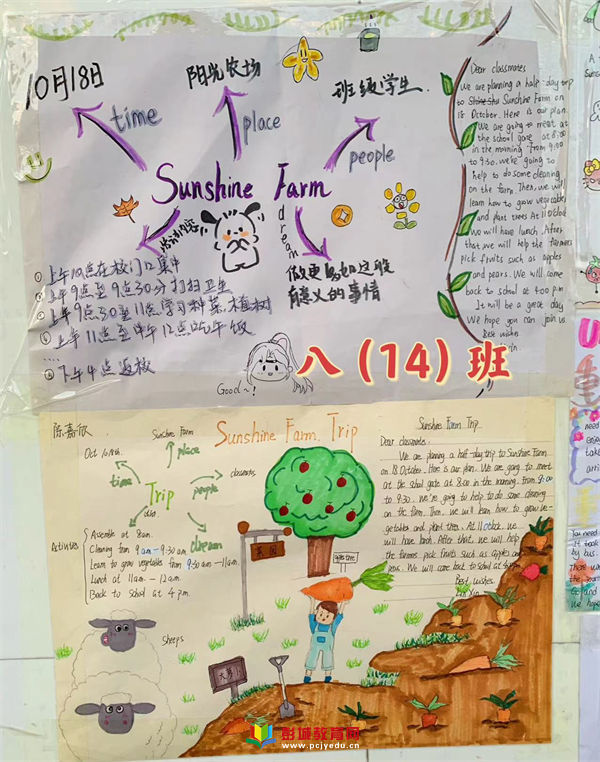 10月18日
阳光农场
班级学生
time
place
people
Sunshine Farm
dream
活动内容
做更多如这般
有意义的事情
①上午10点在校门口集中
②上午9点至9点30分打扫卫生
③上午9点30至11点学习种菜、植树
④上午11点至中午12点吃午饭
....
下午4点返校
Good~!
八(14)班
Dear classmates
We are planning a half-day trip
to Sunshine Farm on
18 October. Here is our plan.
We are going to meet at
the school gate at 8:00
in the morning. From 9:00
to 9:30. we're going to
help to do some cleaning
on the farm. Then, we will
learn how to grow vegetables
and plant trees. At 11 o'clock
we will have lunch. After
that, we will help the farmers
pick fruits such as apples
and pears. We will come
back to school at 4:00 p.m
It will be a great day
We hope you can join us.
Best wishes
陈嘉欣
Sunshine Farm. Trip
Oct 18th.
Sunshine Farm
place
classmates
time
people
Trip
dream
Assemble at 8am.
Cleaning from 9am-9:30am
Learn to grow vegetables from 9:30am-11am.
Lunch at 11am - 12am.
Back to school at 4pm.
Sheeps
菜园
Sunshine Farm Trip
Dear classmates:
We are planning a half-day trip to Sunshine Farm
on 18 October. Here is our plan. We are going to meet
at the school gate at 8:00 in the morning. From 9:00
to 9:30. We're going to help to do some cleaning
on the farm. Then, we will learn how to grow ve-
getables and plant trees. At 11 o'clock we
will have lunch. After that, we will help
the farmers pick fruits such as apples and
pears. We will come back to school at
Best wishes.
彭城教育网
www.pcjyedu.cn